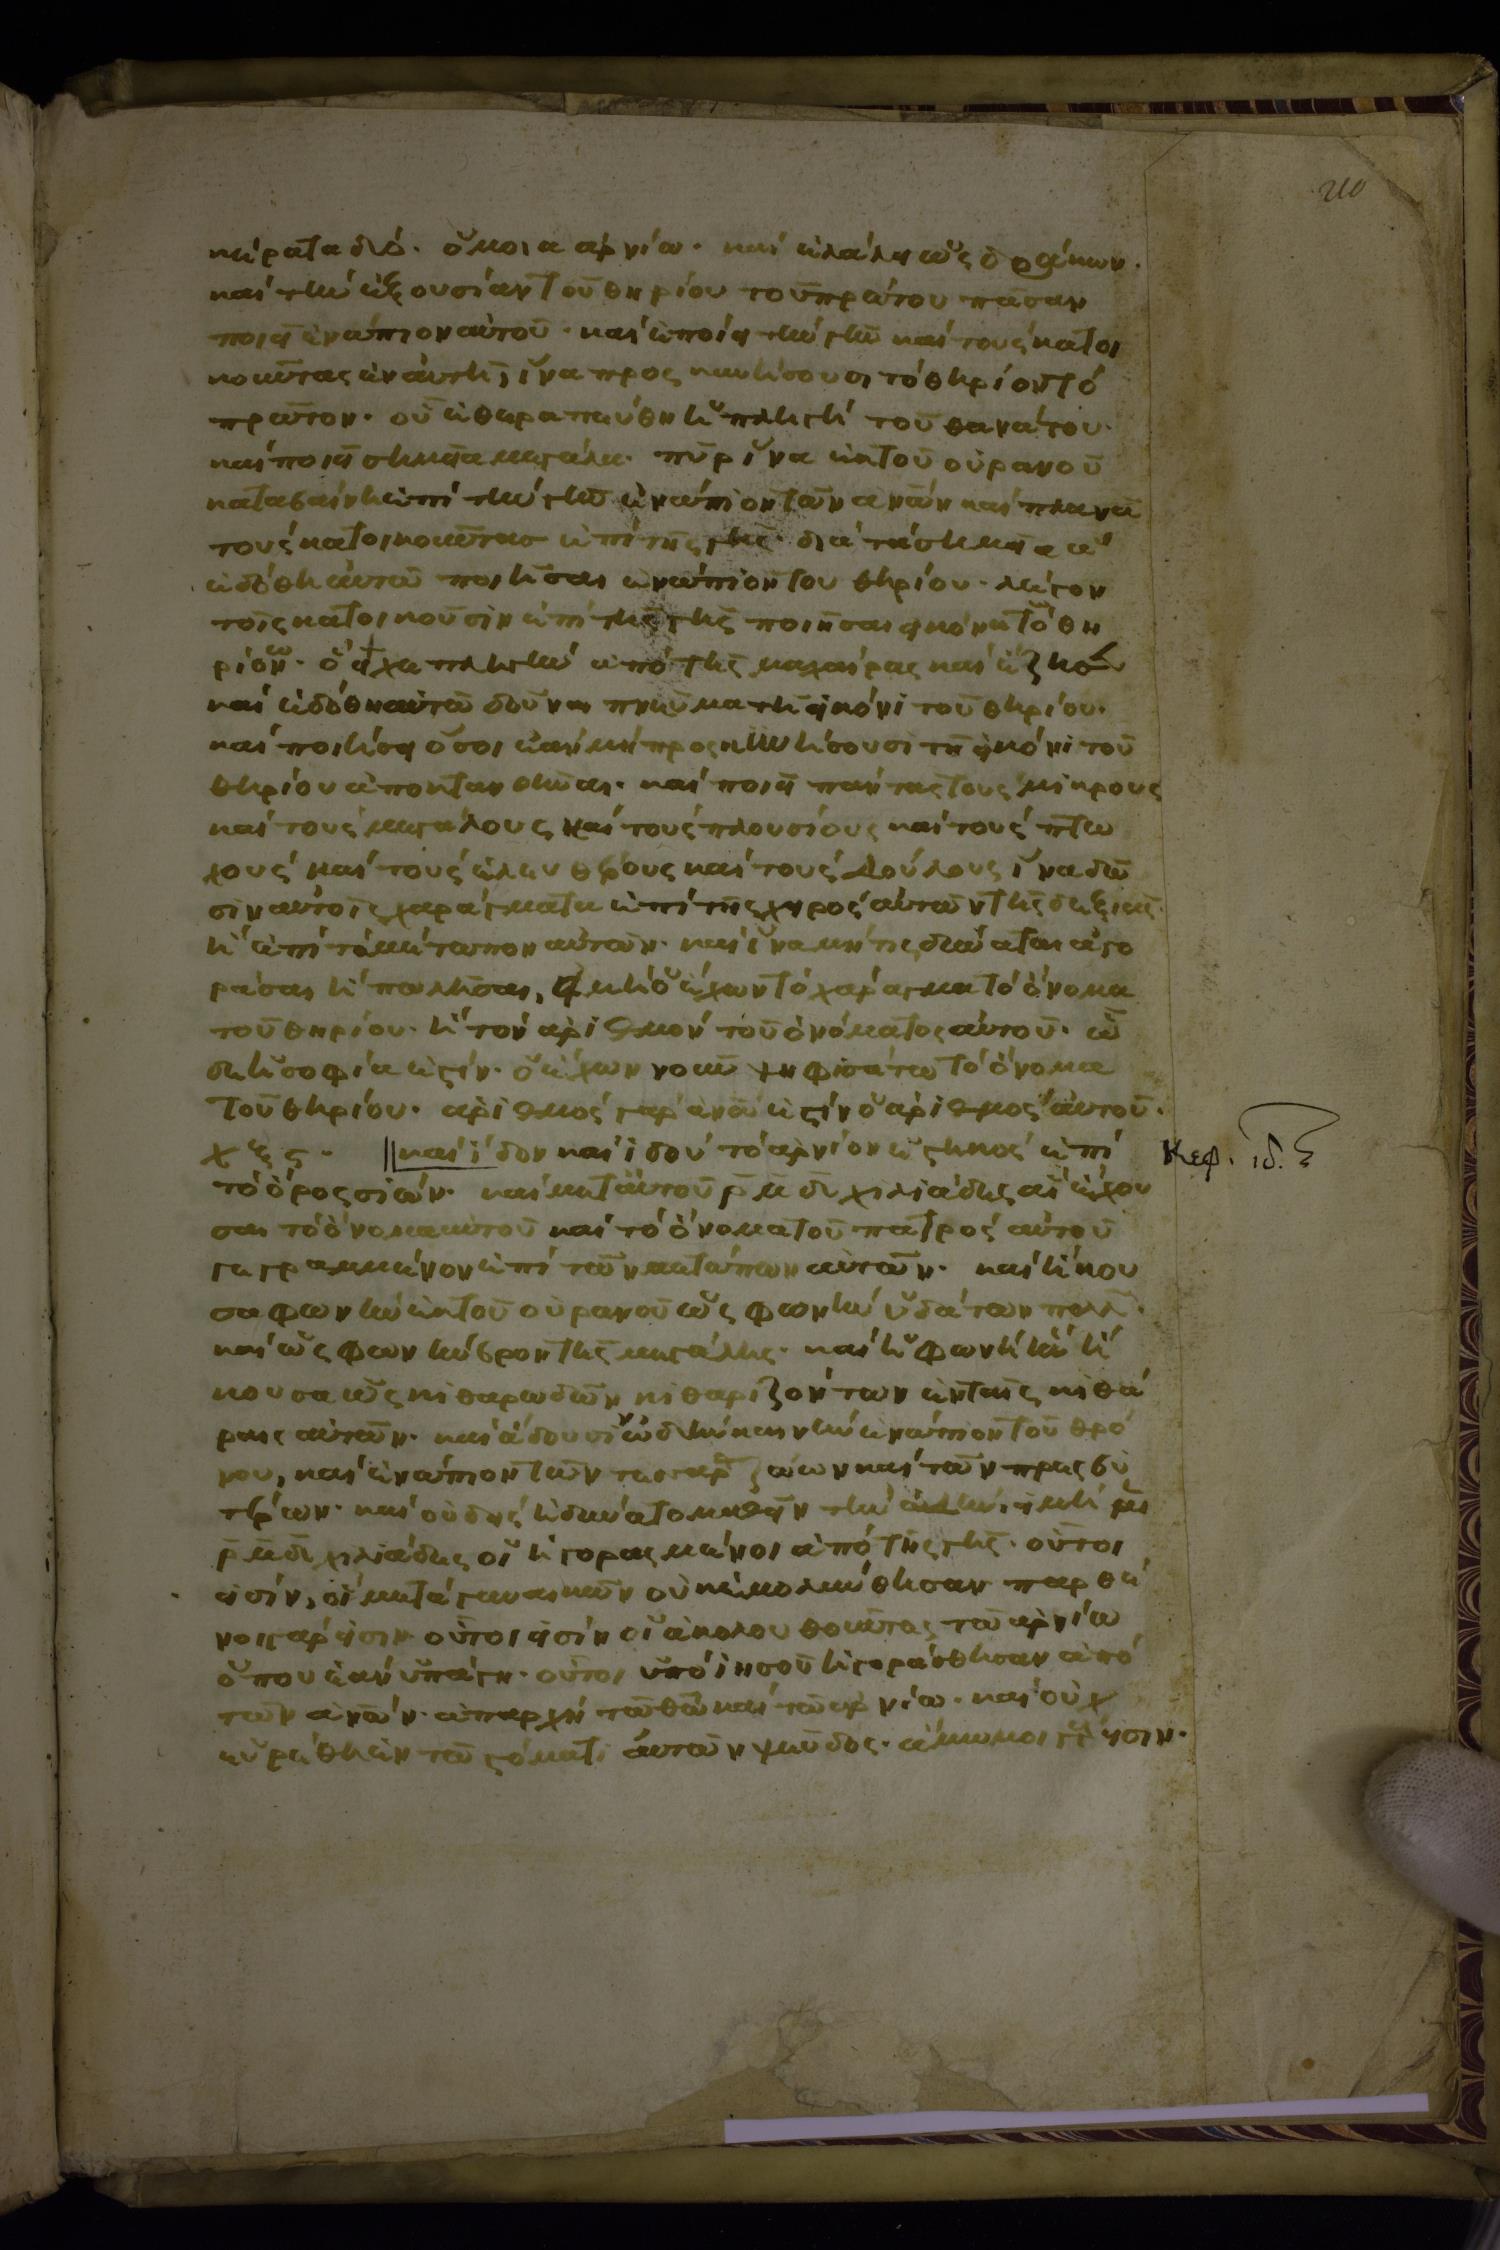 210
κέρατα δύο. ὅμοια ἀρνίω. καὶ ἐλάλει ὡς δράκων.
καὶ τὴν ἐξουσίαν τοῦ θηρίου τοῦ πρώτου πᾶσαν
ποιεῖ ἐνώπιον αὐτοῦ. καὶ ἐποίει τὴν γῆν καὶ τοὺς κατοι
κοῦντας ἐν αὐτῆ, ἵνα προσκυνήσουσι τὸ θηρίον τὸ
πρῶτον. οὗ ἐθεραπεύθη ἡ πληγὴ τοῦ θανάτου.
καὶ ποιεῖ σημεῖα μεγάλα. πῦρ ἵνα ἐκ τοῦ οὐρανοῦ
καταβαίνη ἐπὶ τὴν γῆν ἐνώπιον τῶν ἀνῶν καὶ πλανᾶ
τοὺς κατοικοῦντας ἐπὶ τῆς γῆς. διὰ τὰ σημεῖα ἃ
ἐδόθη αὐτῶ ποιῆσαι ἐνώπιον του θηρίου. λέγον
τοῖς κατοικοῦσιν ἐπὶ τῆς γῆς ποιῆσαι εἰκόνα τὸ θη
ρίον. ὃ εἶχε πληγὴν ἀπὸ τῆς μαχαίρας καὶ ἔζησεν
καὶ ἐδόθη αὐτῶ δοῦναι πνεῦμα τῆ εἰκόνι τοῦ θηρίου.
καὶ ποιήση ὅσοι ἐὰν μὴ προσκυνήσουσι τῆ εἰκόνι τοῦ
θηρίου ἀποκτανθῆναι. καὶ ποιεῖ πάντας τοὺς μικροὺς
καὶ τοὺς μεγάλους καὶ τοὺς πλουσίους καὶ τοὺς πτω
χοὺς καὶ τοὺς ἐλευθέρους καὶ τοὺς δούλους ἵνα δῶ
σιν αὐτοῖς χαράγματα ἐπὶ τῆς χειρὸς αὐτῶν τῆς δεξιᾶς.
ἢ ἐπὶ τὸ μέτωπον αὐτῶν. καὶ ἵνα μή τις δύναται ἀγο
ράσαι ἢ πωλῆσαι, εἰ μὴ ὁ ἔχων τὸ χάραγμα τὸ ὄνομα
τοῦ θηρίου. ἢ τὸν ἀριθμὸν τοῦ ὀνόματος αὐτοῦ. ὧ
δε ἡ σοφία ἐστίν. ὁ ἔχων νοῦν ψηφισάτω τὸ ὄνομα
τοῦ θηρίου. ἀριθμὸς γὰρ ἀνοῦ ἐστὶν ὁ ἀριθμὸς αὐτοῦ.
χξϛ. ‖ καὶ ἴδον καὶ ἰδοὺ τὸ ἀρνίον ἑστηκὸς ἐπὶ
Κεφ. ιδ.
τὸ ὄρος σιών. καὶ μετ αὐτοῦ ρμδ χιλιάδες αἱ ἔχου
σαι τὸ ὄνομα αὐτοῦ καὶ τὸ ὄνομα τοῦ πατρὸς αὐτοῦ
γεγραμμένον ἐπὶ τῶν μετώπων αὐτῶν. καὶ ἤκου
σα φωνὴν ἐκ τοῦ οὐρανοῦ ὡς φωνὴν ὑδάτων πολλ.
καὶ ὡς φωνὴν βροντῆς μεγάλης. καὶ ἡ φωνὴ ἣν ἤ
κουσα ὡς κιθαρωδῶν κιθαριζόντων ἐν ταῖς κιθά
ραις αὐτῶν. καὶ ἄδουσιν ὠδὴν καινὴν ἐνώπιον τοῦ θρό
νου, καὶ ἐνώπιον τῶν τεσσάρ ζώων καὶ τῶν πρεσβυ
τέρων. καὶ οὐδεὶς ἠδύνατο μαθεῖν τὴν ὠδὴν, εἰ μὴ
ρμδ χιλιάδες οἱ ἠγορασμένοι ἀπὸ τῆς γῆς. οὗτοι
εἰσίν, οἳ μετὰ γυναικῶν οὐκ ἐμολύνθησαν παρθέ
νοι γάρ εἰσιν οὗτοι εἰσὶν οἱ ἀκολουθοῦντες τῶ ἀρνίω
ὅπου ἐὰν ὑπάγη. οὗτοι ὑπὸ ἰησοῦ ἠγοράσθησαν ἀπὸ
τῶν ἀνῶν. ἀπαρχὴ τῶ θῶ καὶ τῶ ἀρνίω. καὶ οὐχ
εὑρέθη ἐν τῶ στόματι αὐτῶν ψεῦδος. ἄμωμοι γάρ εἰσιν.